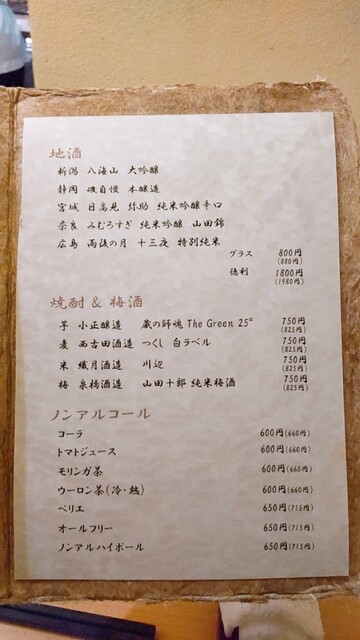 地酒
新潟 八海山 大吟醸
静岡 磯自慢 本醸造
宮城 日高見 弥助 純米吟醸辛口
奈良 みむろすぎ 純米吟醸 山田錦
広島 雨後の月 十三夜 特別純米
グラス 800円
(880円)
徳利 1800円
(1980円)
焼酎 & 梅酒
芋 小正醸造 蔵の師魂 The Green 25° 750円
(825円)
麦 西吉田酒造 つくし 白ラベル 750円
(825円)
米 繊月酒造 川辺 750円
(825円)
梅 泉橋酒造 山田十郎 純米梅酒 750円
(825円)
ノンアルコール
コーラ 600円(660円)
トマトジュース 600円(660円)
モリンガ茶 600円(660円)
ウーロン茶(冷・熱) 600円(660円)
ペリエ 650円(715円)
オールフリー 650円(715円)
ノンアルハイボール 650円(715円)